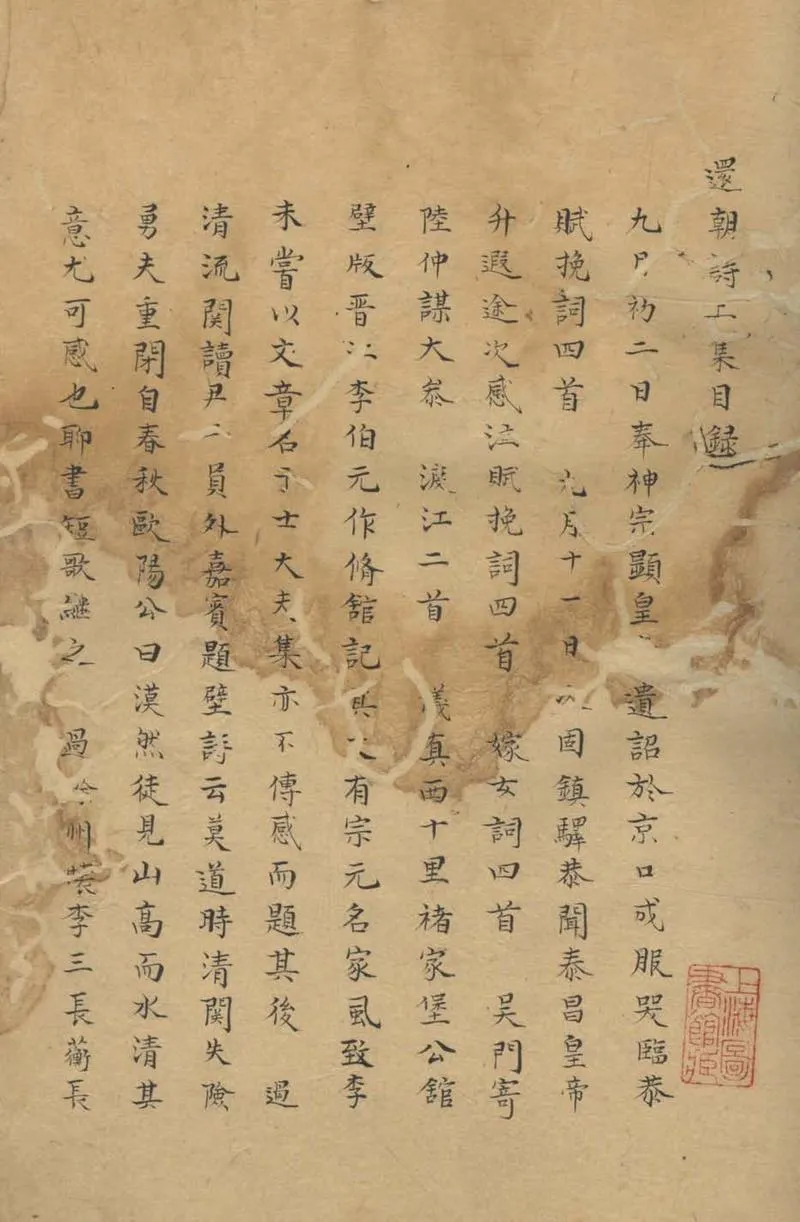 還朝詩上集目錄
九月初二日奉神宗顯皇 遺詔於京口成服哭臨恭
賦挽詞四首 九月十一日 固鎮驛恭聞泰昌皇帝
升遐途次感泣賦挽詞四首 嫁女詞四首 吳門寄
陸仲謀大參 渡江二首 儀真西十里褚家堡公舘
壁版晋江李伯元作脩舘記 有宗元名家風致李
未嘗以文章名于士大夫集亦不傳感而題其後 過
清流関讀尹 員外嘉賓題壁詩云莫道時清関失險
勇夫重閉自春秋歐陽公曰漠然徒見山高而水清其
意尤可感也聊書短歌繼之 過 州 李三長蘅長
上海圖書館藏